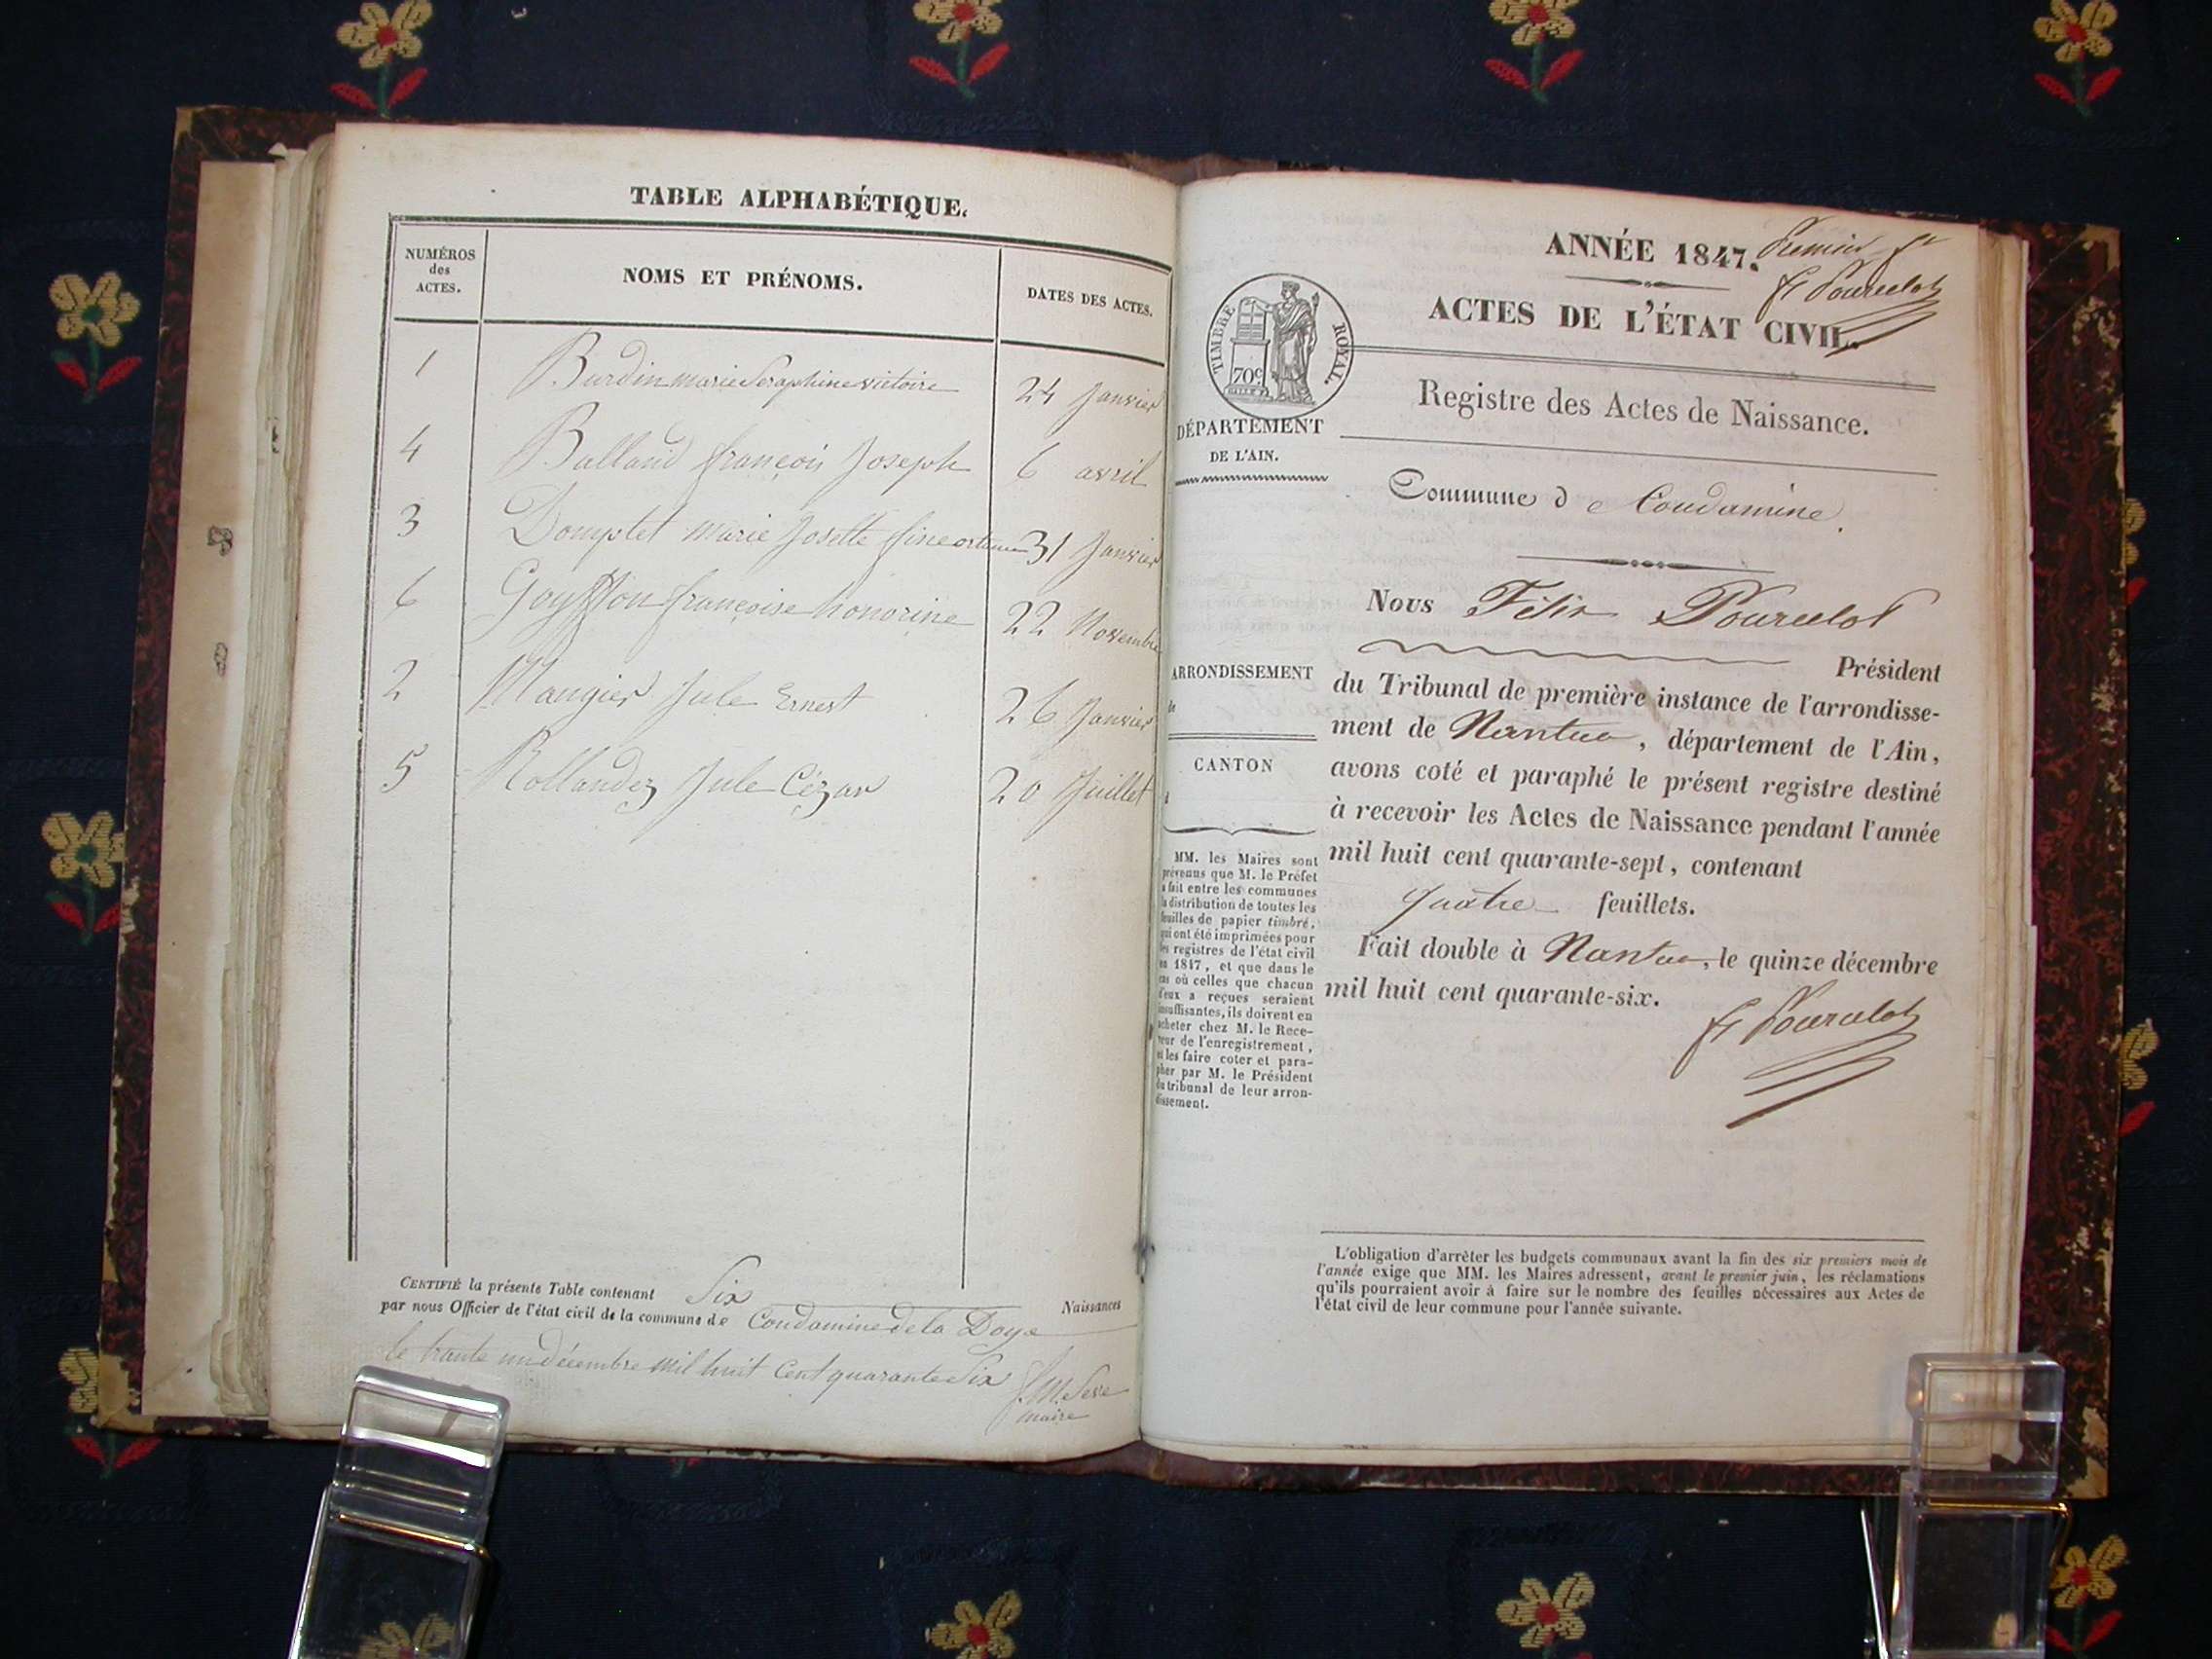 TABLE ALPHABÉTIQUE.
NUMÉROS
des
ACTES.
NOMS ET PRÉNOMS.
DATES DES ACTES.
1 Burdin marie Seraphine victoire 24 Janvier
4 Balland françois Joseph 6 avril
3 Domptet Marie Josette 31 Janvier
6 Goyffon françoise honorine 22 Novembre
2 Maugier Jule Ernest 26 Janvier
5 Rollandez Jule Cézar 20 Juillet
CERTIFIÉ la présente Table contenant Six Naissances
par nous Officier de l'état civil de la commune de Condamine de la Doye
le trante un décembre mil huit Cent quarante Six
J. M. Seve
maire
ANNÉE 1847.
Premier ft
f Pourcelot
ACTES DE L'ÉTAT CIVIL.
TIMBRE ROYAL.
70c
Registre des Actes de Naissance.
DÉPARTEMENT
DE L'AIN.
Commune de Condamine.
Nous Félix Pourcelot
Président
du Tribunal de première instance de l'arrondisse-
ment de Nantua, département de l'Ain,
avons coté et paraphé le présent registre destiné
à recevoir les Actes de Naissance pendant l'année
mil huit cent quarante-sept, contenant
quatre feuillets.
Fait double à Nantua, le quinze décembre
mil huit cent quarante-six.
f Pourcelot
ARRONDISSEMENT
de
CANTON
d
MM. les Maires sont
prévenus que M. le Préfet
a fait entre les communes
la distribution de toutes les
feuilles de papier timbré,
qui ont été imprimées pour
les registres de l'état civil
en 1847, et que dans le
cas où celles que chacun
d'eux a reçues seraient
insuffisantes, ils doivent en
acheter chez M. le Rece-
veur de l'enregistrement,
et les faire coter et para-
pher par M. le Président
du tribunal de leur arron-
dissement.
L'obligation d'arrêter les budgets communaux avant la fin des six premiers mois de
l'année exige que MM. les Maires adressent, avant le premier juin, les réclamations
qu'ils pourraient avoir à faire sur le nombre des feuilles nécessaires aux Actes de
l'état civil de leur commune pour l'année suivante.